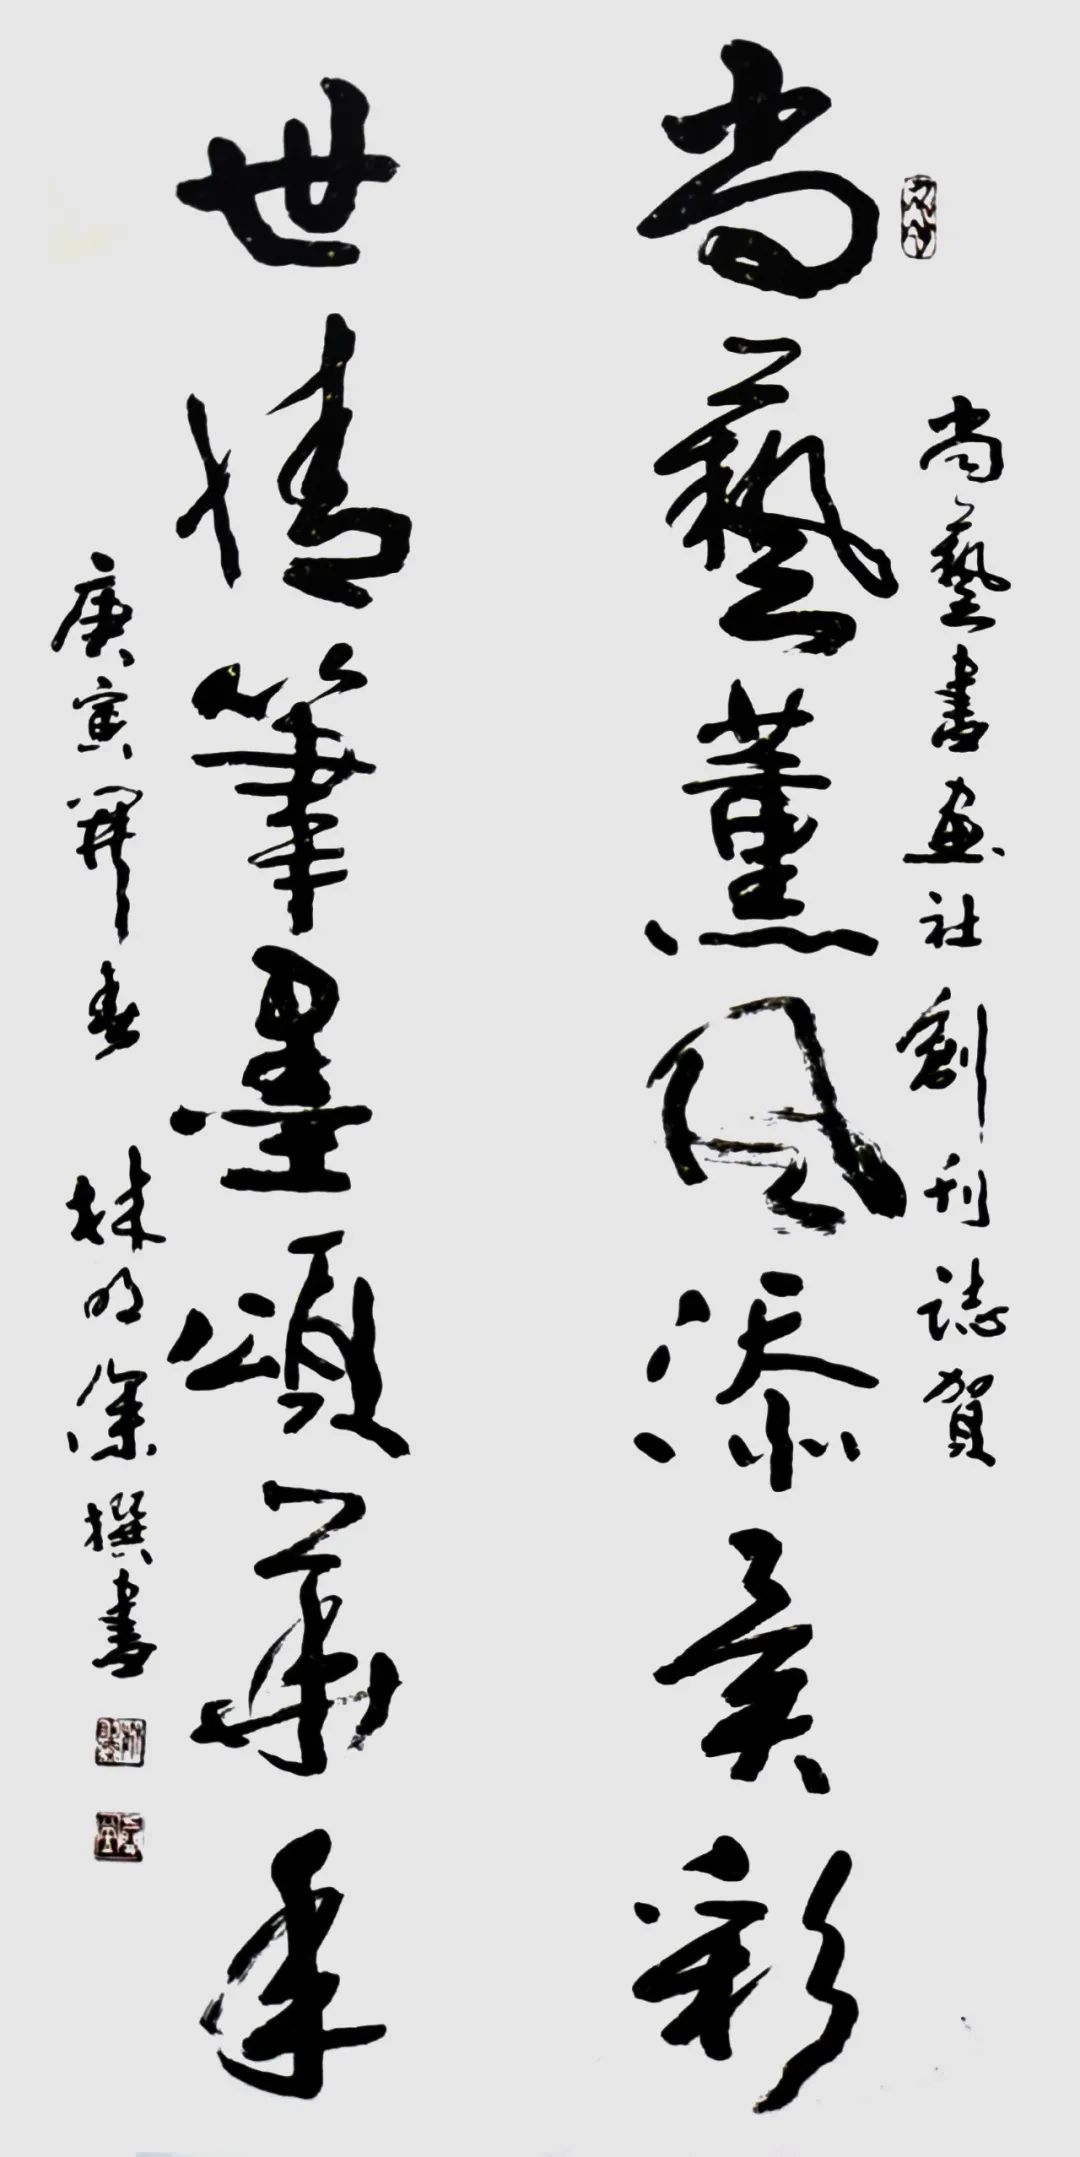 尚藝書画社創刊誌賀
尚藝薰風添異彩
世情筆墨頌華年
庚寅開春 林明深撰書